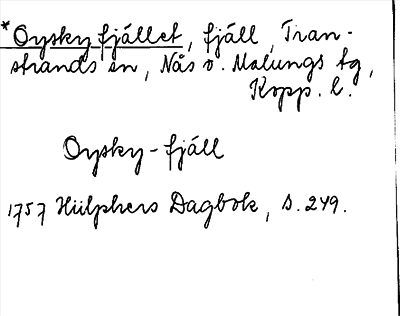 *Oysky fjället, fjäll, Tran-
strands sn, Nås o. Malungs tg,
Kopp. l.
Oysky-fjäll
1757 Hülphers Dagbok, s. 249.